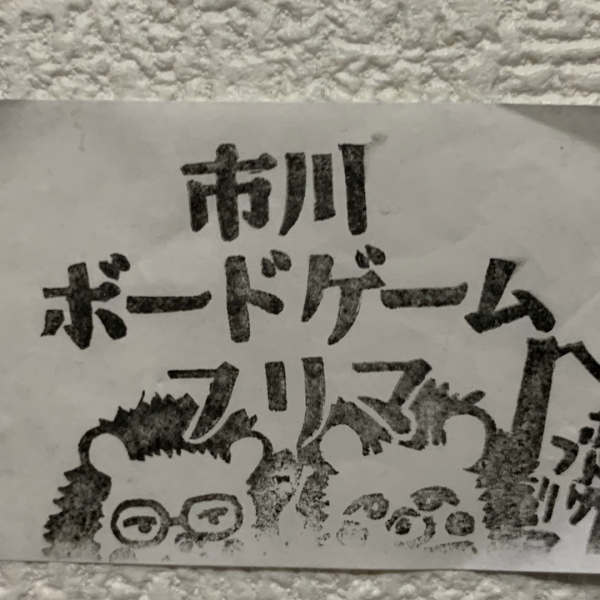 市川
ボードゲーム
フリマ